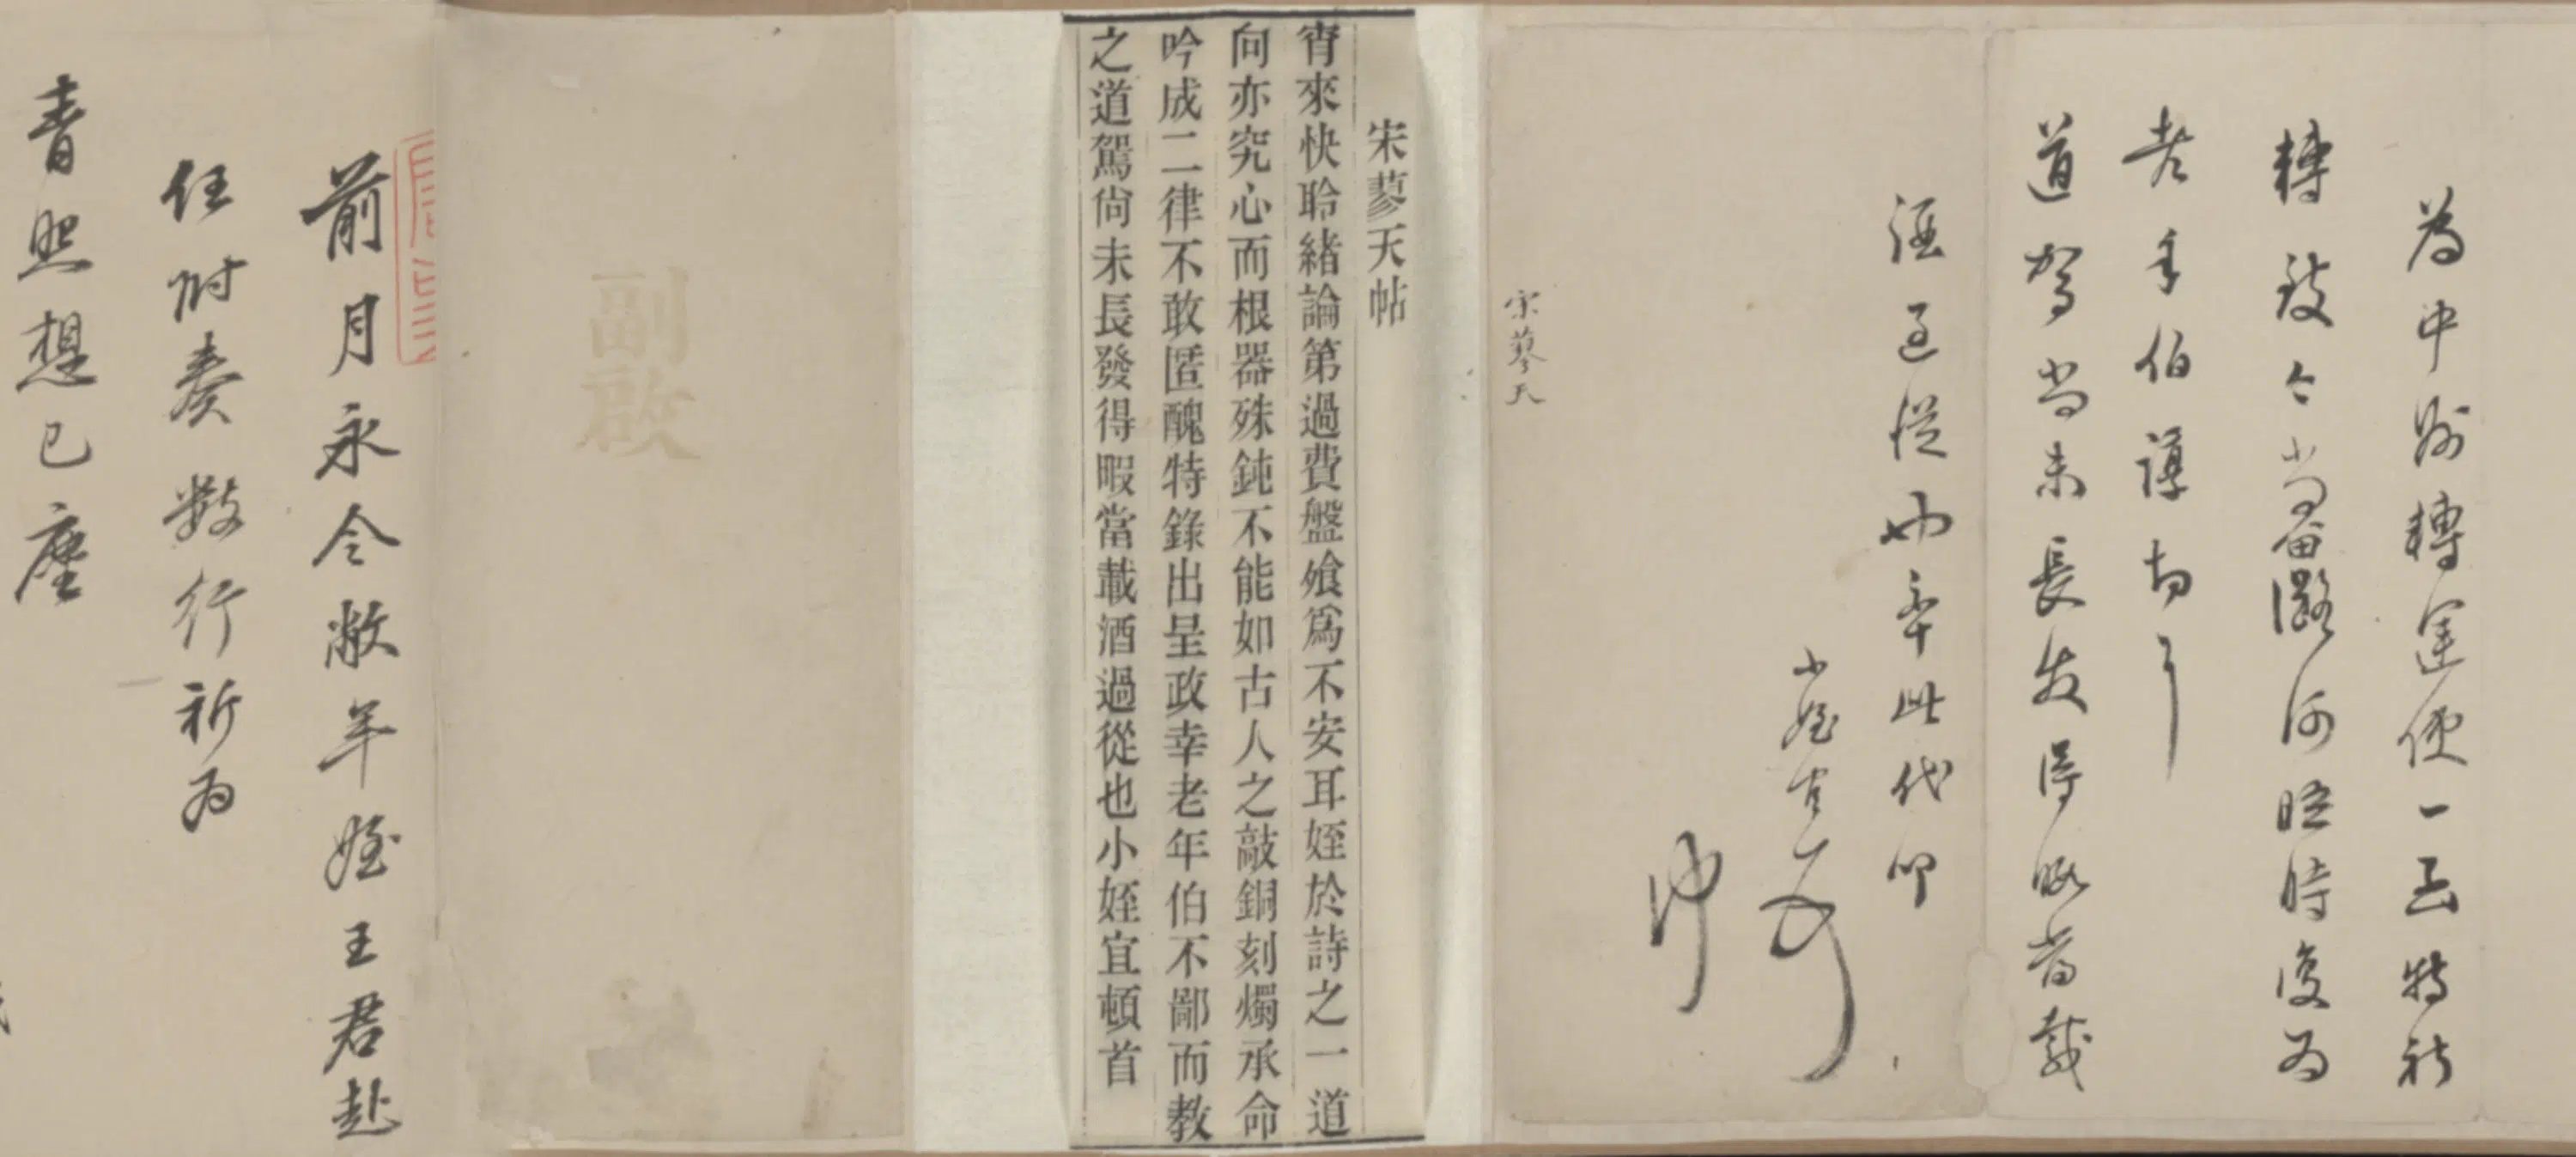 為中州轉運使一函特祈
轉致今尚留潞河晤時復為
老年伯謀切切
道駕尚未長發得暇當載
酒過從也率此代叩
小姪宜頓
首
宋蓼天
宋蓼天帖
宵來快聆緒論第過費盤飧爲不安耳姪於詩之一道
向亦究心而根器殊鈍不能如古人之敲銅刻燭承命
吟成二律不敢匿醜特錄出呈政幸老年伯不鄙而教
之道駕尙未長發得暇當載酒過從也小姪宜頓首
副啟
前月永令敝年姪王君赴
任附奏數行祈為
青照想已塵